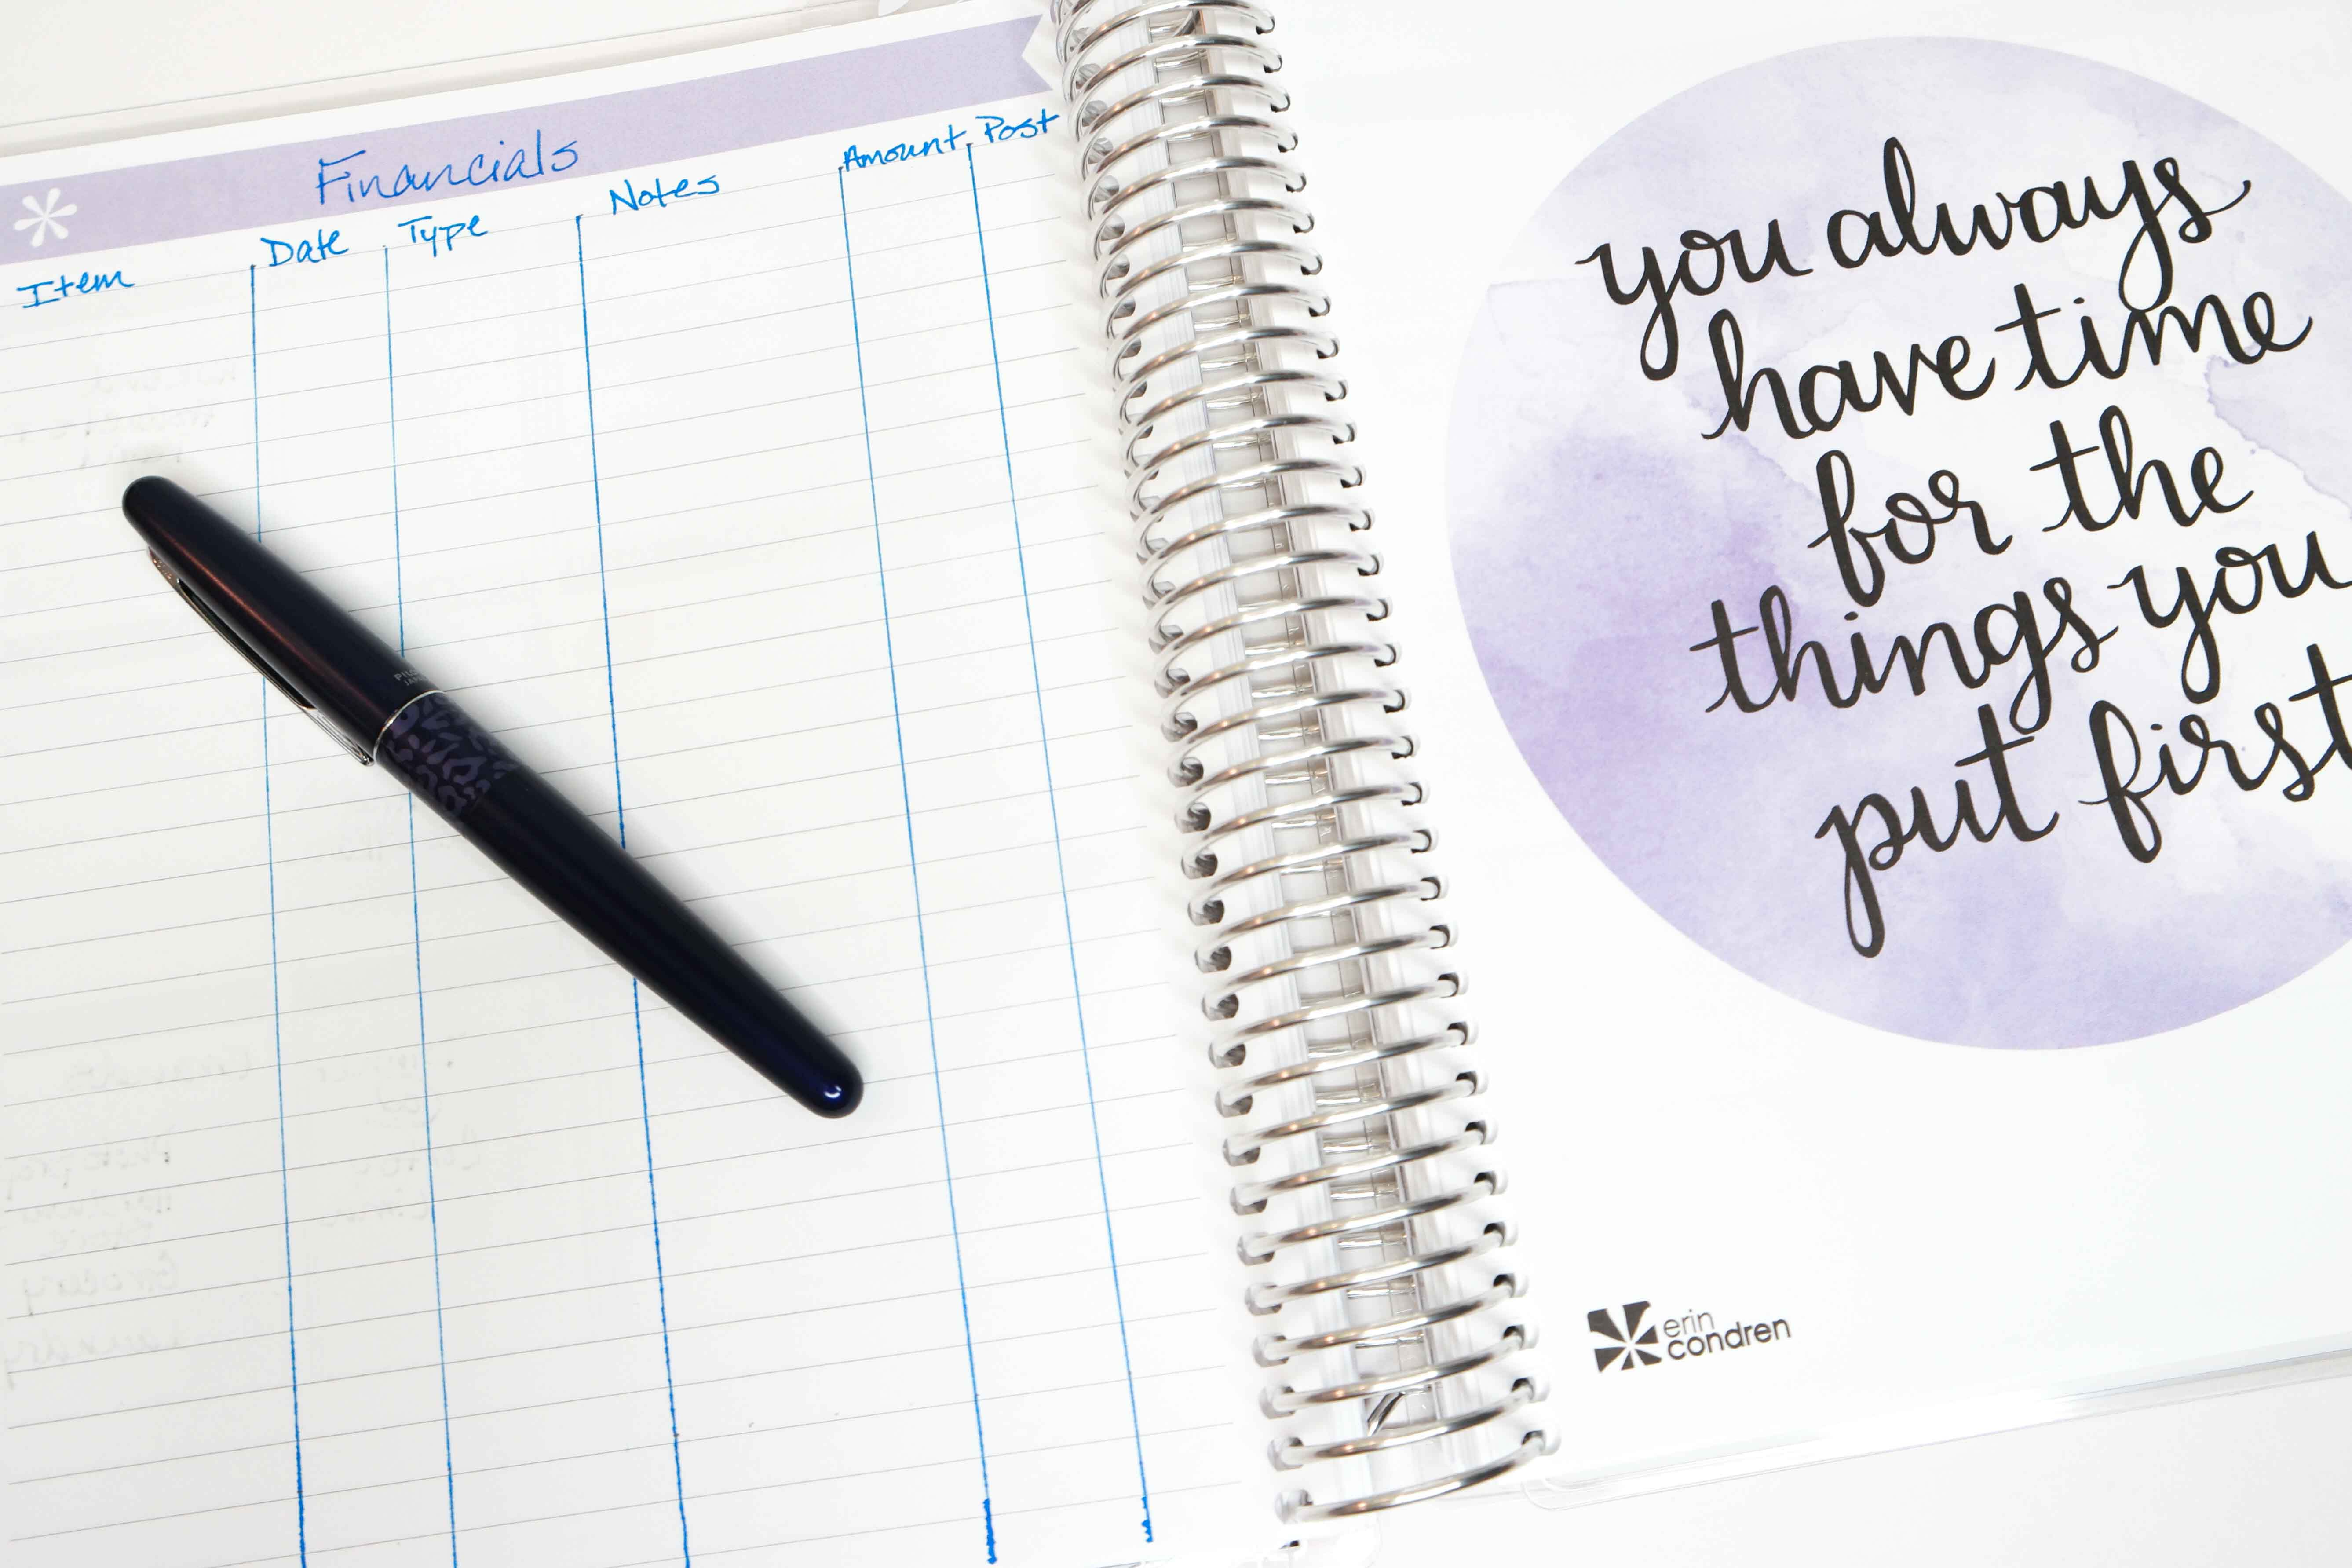 Financials
Item Date Type Notes Amount Post
you always
have time
for the
things you
put first
erin
condren